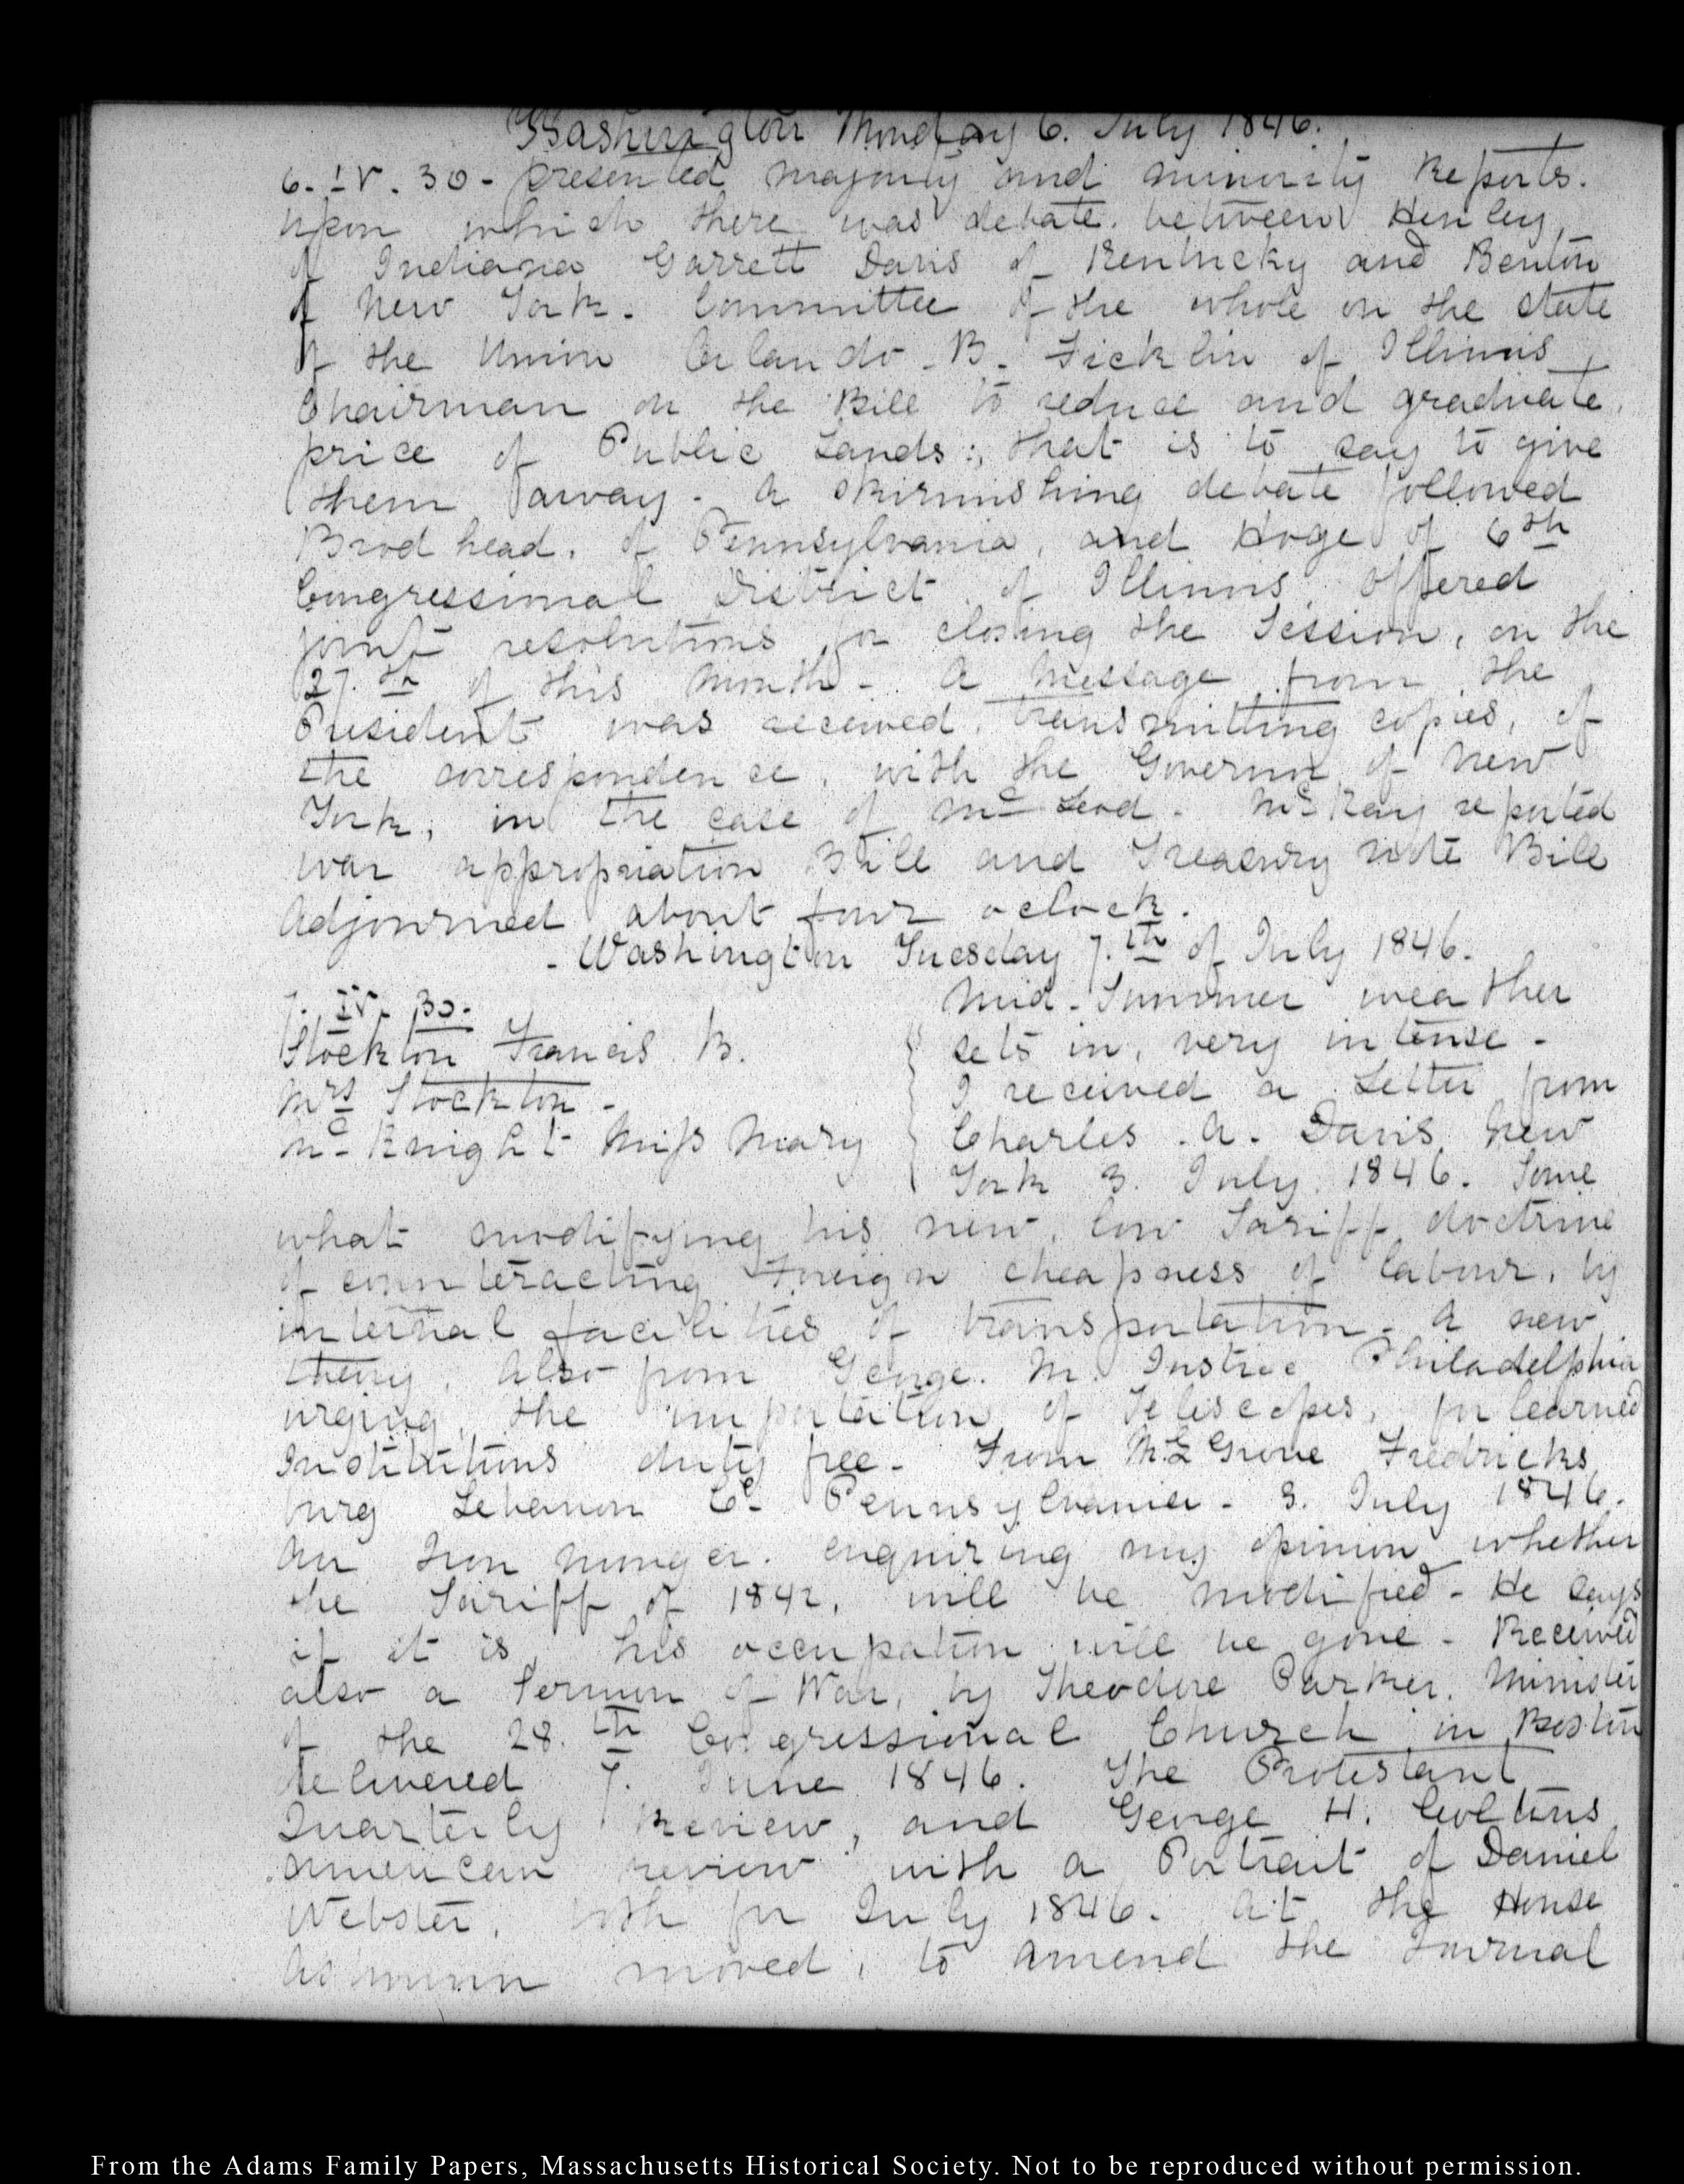 Washington Monday 6. July 1846.
6. IV. 30 - presented majority and minority Reports.
upon which there was debate. between Henley,
of Indiana Garrett Davis of Kentucky and Benton
of New York. Committee of the whole on the state
of the Union Orlando. B. Ficklin of Illinois,
Chairman on the Bill to reduce and graduate,
price of Public Lands:, that is to say to give
them away - A skirmishing debate followed
Brodhead, of Pennsylvania, and Hoge of 6th
Congressional District, of Illinois, offered
joint resolutions for closing the Session, on the
27.th of this Month - A Message from, the
President was received, transmitting copies, of
the correspondence, with the Governor of New
York, in the case of Mc Leod - McKay reported
war appropriation Bill and Treasury note Bill
Adjourned about four oclock.
- Washington Tuesday 7.th of July 1846.
7. IV. 30.
Stockton Francis. B.
Mrs Stockton -
Mc Knight Miss Mary
Mid-Summer weather
sets in, very intense -
I received a Letter from
Charles. A. Davis New
York 3. July. 1846. Some
what modifying his new, low Tariff doctrine
of counteracting Foreign cheapness of labour, by
internal facilities of transportation - A new
theory, Also from George. M. Justice Philadelphia
urging, the importation of Teliscopes, for learned
Institutions duty free - From M. L Grove Fredricks
burg Lebanon Co. Pennsylvania - 3. July 1846.
An Iron monger. enquiring my opinion whether
the Tariff of 1842, will be modified - He says
if it is, his occupation will be gone - Received
also a Sermon of War, by Theodore Parker, Minister
of the 28.th Congressional Church in Boston
delivered 7. June 1846. The Protestant
Quarterly Review, and George H. Coltons
American review with a Portrait of Daniel
Webster, both for July 1846. At the House
Ashmun moved, to amend the Journal
From the Adams Family Papers, Massachusetts Historical Society. Not to be reproduced without permission.